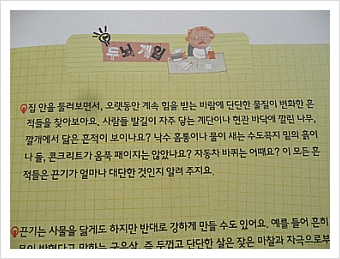 두뇌 게임
집 안을 둘러보면서, 오랫동안 계속 힘을 받는 바람에 단단한 물질이 변화한 흔
적들을 찾아보아요. 사람들 발길이 자주 닿는 계단이나 현관 바닥에 깔린 나무,
깔개에서 닳은 흔적이 보이나요? 낙수 홈통이나 물이 새는 수도꼭지 밑의 흙이
나 돌, 콘크리트가 움푹 패이지는 않았나요? 자동차 바퀴는 어때요? 이 모든 흔
적들은 끈기가 얼마나 대단한 것인지 알려 주지요.
끈기는 사물을 닳게도 하지만 반대로 강하게 만들 수도 있어요. 예를 들어 흔히
못이 박혔다고 말하는 굳은살, 즉 두껍고 단단한 살은 잦은 마찰과 자극으로부